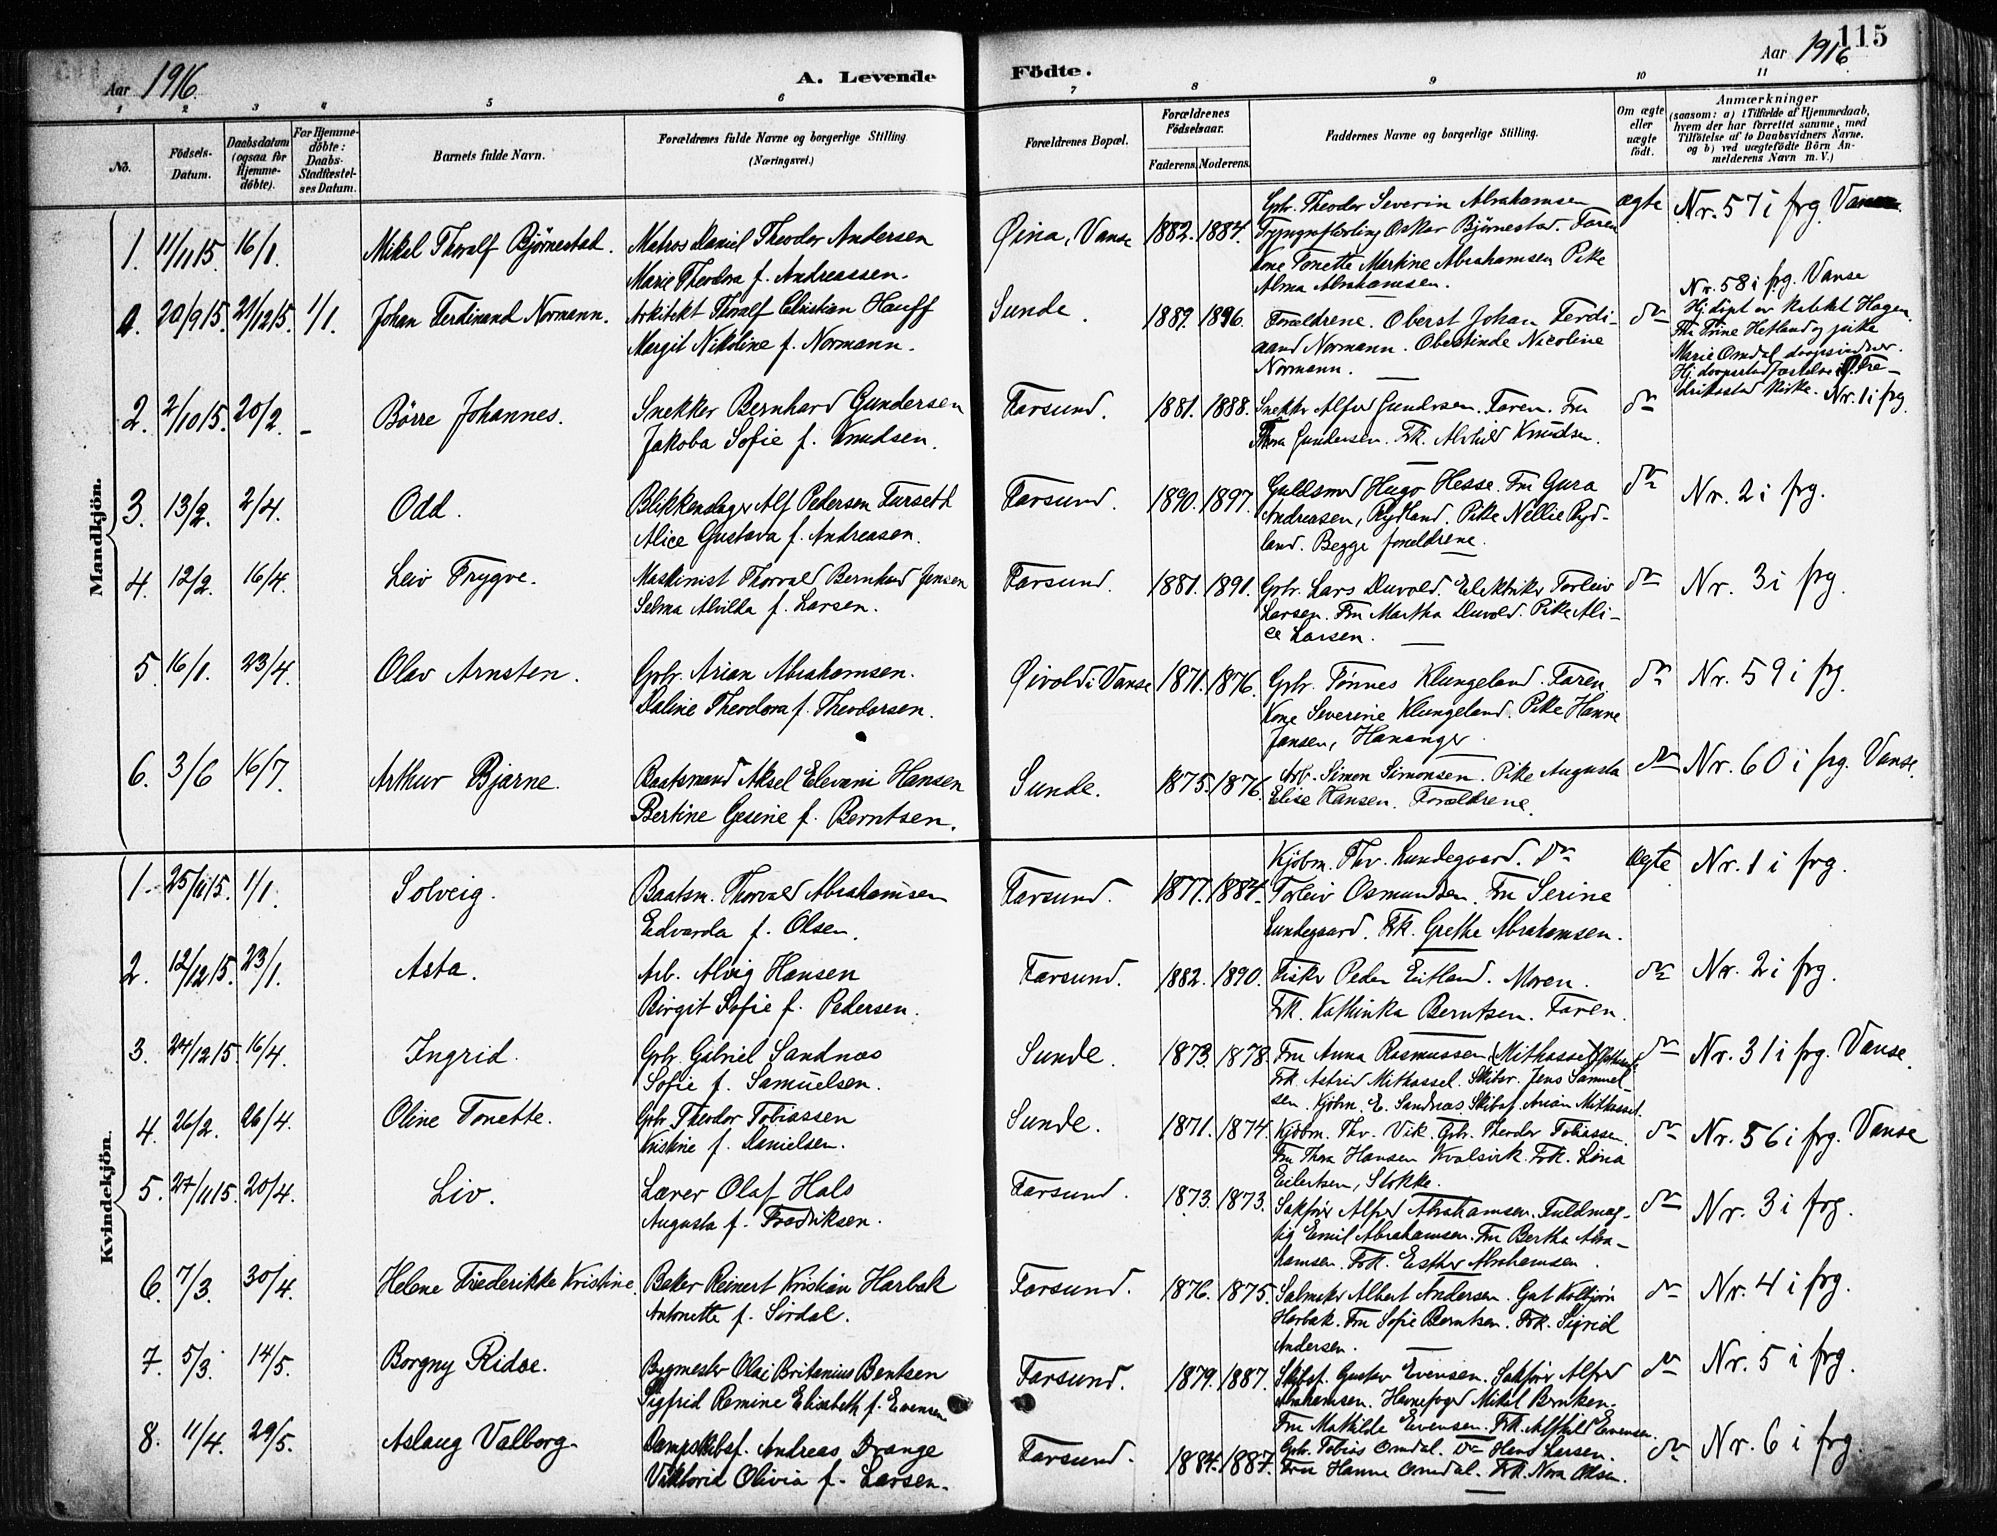 115
Aar 1916.
A. Levende
Födte.
Aar 1916
1 2 3 4 5 6 7 8 9 10 11
No.
Födsels-Datum.
Daabsdatum (ogsaa for Hjemme-döbte).
For Hjemme-döbte: Daabs-Stadfæstel-ses Datum.
Barnets fulde Navn.
Forældrenes fulde Navne og borgerlige Stilling
(Næringsvei.)
Forældrenes Bopæl.
Forældrenes Födselsaar.
Faderens. Moderens.
Faddernes Navne og borgerlige Stilling.
Om ægte eller uægte födt.
Anmærkninger
(saasom: a) i Tilfælde af Hjemmedaab, hvem der har forrettet samme, med Tilföielse af to Daabsvidners Navne, og b) ved uægtefödte Börn Anmelderens Navn m. V.)
Mandkjön.
1. 11/11 15. 16/1. Mikal Thoralf Bjørnestad. Matros Daniel Theodor Andersen
Marie Theodora f. Andreassen.
Øina, Vanse 1882. 1884. Gbr. Theodor Severin Abrahamsen
Oskar Bjørnestad. Faren
Kone Tonette Martine Abrahamsen Pike
Alma Abrahamsen.
ægte Nr. 57 i frg. Vanse
20/9 15. 21/12 15. 1/1. Johan Ferdinand Normann. Arkitekt Thoralf Christian Hauff
Margit Nikoline f. Normann.
Sunde. 1889. 1896. Forældrene. Oberst Johan Ferdi-
nand Normann. Oberstinde Nicoline
Normann.
do Nr. 58 i frg. Vanse
Hj. døpt av Hagen.
Fru Trine Hetland og pike
Marie Omdal daapsvidner.
Hj. daapsstadfæstelse i Fre-
drikstad kirke.
2. 2/10 15. 20/2. – Børre Johannes. Snekker Bernhard Gundersen
Jakoba Sofie f. Knudsen.
Farsund. 1881. 1888. Snekkr Alfred Gundersen. Faren. Fru
Thora Gundersen. Frk. Alvhild Knudsen.
do Nr. 1 i frg.
3. 13/2. 2/4. Odd. Blikkenslager Alf Pedersen Furseth
Alice Gustava f. Andreasen.
Farsund. 1890. 1897. Guldsmed Hugo Hesse. Fru Gura
Andreasen, Rydland. Pike Nellie Ryd-
land. Begge forældrene.
do Nr. 2 i frg.
4. 12/2. 16/4. Leiv Trygve. Maskinist Thorvald Bernhard Jensen
Selma Alvilda f. Larsen.
Farsund. 1881. 1891. Gbr. Lars Duvold. Elektriker Torleiv
Larsen. Fru Martha Duvold. Pike Ali-
ce Larsen.
do Nr. 3 i frg.
5. 16/1. 23/4. Olav Arnsten. Gbr. Arian Abrahamsen.
Daline Theodora f. Theodorsen.
Øivold i Vanse 1871. 1876. Gbr. Tønnes Klungeland. Faren.
Kone Severine Klungeland. Pike Hanne
Jansen, Hananger.
do Nr. 59 i frg.
6. 3/6 16/7. Arthur Bjarne. Baatsmand Aksel Hansen
Bertine Gesine f. Berntsen.
Sunde. 1875. 1876. Arb. Simon Simonsen. Pike Augusta
Elise Hansen. Forældrene.
do Nr. 60 i frg. Vanse.
Kvindekjön.
1. 25/11 15. 1/1. Solveig. Baatsm. Thorvald Abrahamsen
Edvarda f. Olsen.
Farsund. 1877. 1884. Kjøbm. Thv. Lundegaard. Do
Torleiv Osmundsen. Fru Serine
Lundegaard. Frk. Grethe Abrahamsen.
ægte Nr. 1 i frg.
2. 12/12 15. 23/1. Asta. Arb. Alvig Hansen
Birgit Sofie f. Pedersen.
Farsund. 1882. 1890. Fisker Peder Eitland. Moren.
Frk. Kathinka Berntsen. Faren.
do Nr. 2 i frg.
3. 24/12 15 16/4. Ingrid. Gbr. Gabriel Sandnæs
Sofie f. Samuelsen.
Sunde. 1873. 1878. Fru Anna Rasmussen (Mithassel)
Frk. Astrid Mithassel. Skibsr. Jens Samuel-
sen. Kjøbm. E. Sandnæs. Skibsf. Arian Mithassel.
do Nr. 31 i frg. Vanse.
4. 26/2. 26/4. Oline Tonette. Gbr. Theodor Tobiassen
Kristine f. Danielsen.
Sunde. 1871. 1874. Kjøbm. Thv. Vik. Gbr. Theodor Tobiassen.
Fru Thora Hansen Kvalsvik. Frk. Lina
Eilertsen, Stokke.
do Nr. 56 i frg. Vanse
5. 27/11 15. 20/4. Liv. Lærer Olaf Hals
Augusta f. Fredriksen.
Farsund. 1873. 1873. Sakfører Alfred Abrahamsen. Fuldmæg-
tig Emil Abrahamsen. Fru Bertha Abra-
hamsen. Frk. Esther Abrahamsen.
do Nr. 3 i frg.
6. 7/3. 30/4. Helene Frederikke Kristine. Baker Reinert Kristian Harbak
Antonette f. Sørdal.
Farsund. 1876. 1875. Salmaker Albert Andersen. Gut Kolbjørn
Harbak. Fru Sofie Berntsen. Frk. Sigrid
Andersen.
do Nr. 4 i frg.
7. 5/3. 14/5. Borgny Ridse. Bygmester Olai Britanius Bentsen
Sigfrid Ramine Elisabeth f. Evensen
Farsund. 1879. 1887. Skibsf. Gustav Evensen. Sakfører Alfred
Abrahamsen. Havnefoged Mikal Berntsen.
Fru Mathilde Evensen. Frk. Alfhild Evensen.
do Nr. 5 i frg.
8. 11/4. 29/5. Aslaug Valborg. Dampskibsf. Andreas Drange
Viktoria Olivia f. Larsen.
Farsund. 1884. 1887. Gbr. Tobias Omdal. Do Hans Larsen.
Fru Hanna Omdal. Frk. Nora Olsen.
do Nr. 6 i frg.